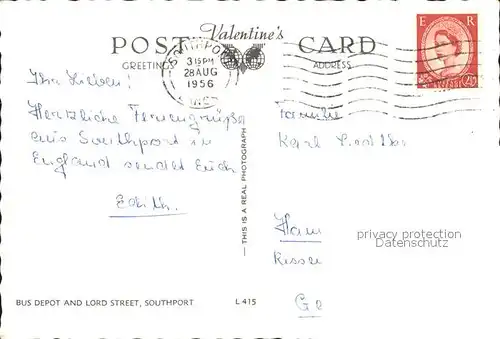 POST Valentine's CARD
GREETINGS ADDRESS
SOUTHPORT
3 15 PM
28 AUG
1956
E R
Ihr Lieben!
Herzliche Feriengrüße
aus Southport in
England sendet Euch
Edith.
Familie
Karl
Ham
Risse
Ge
privacy protection
Datenschutz
— THIS IS A REAL PHOTOGRAPH —
BUS DEPOT AND LORD STREET, SOUTHPORT L 415